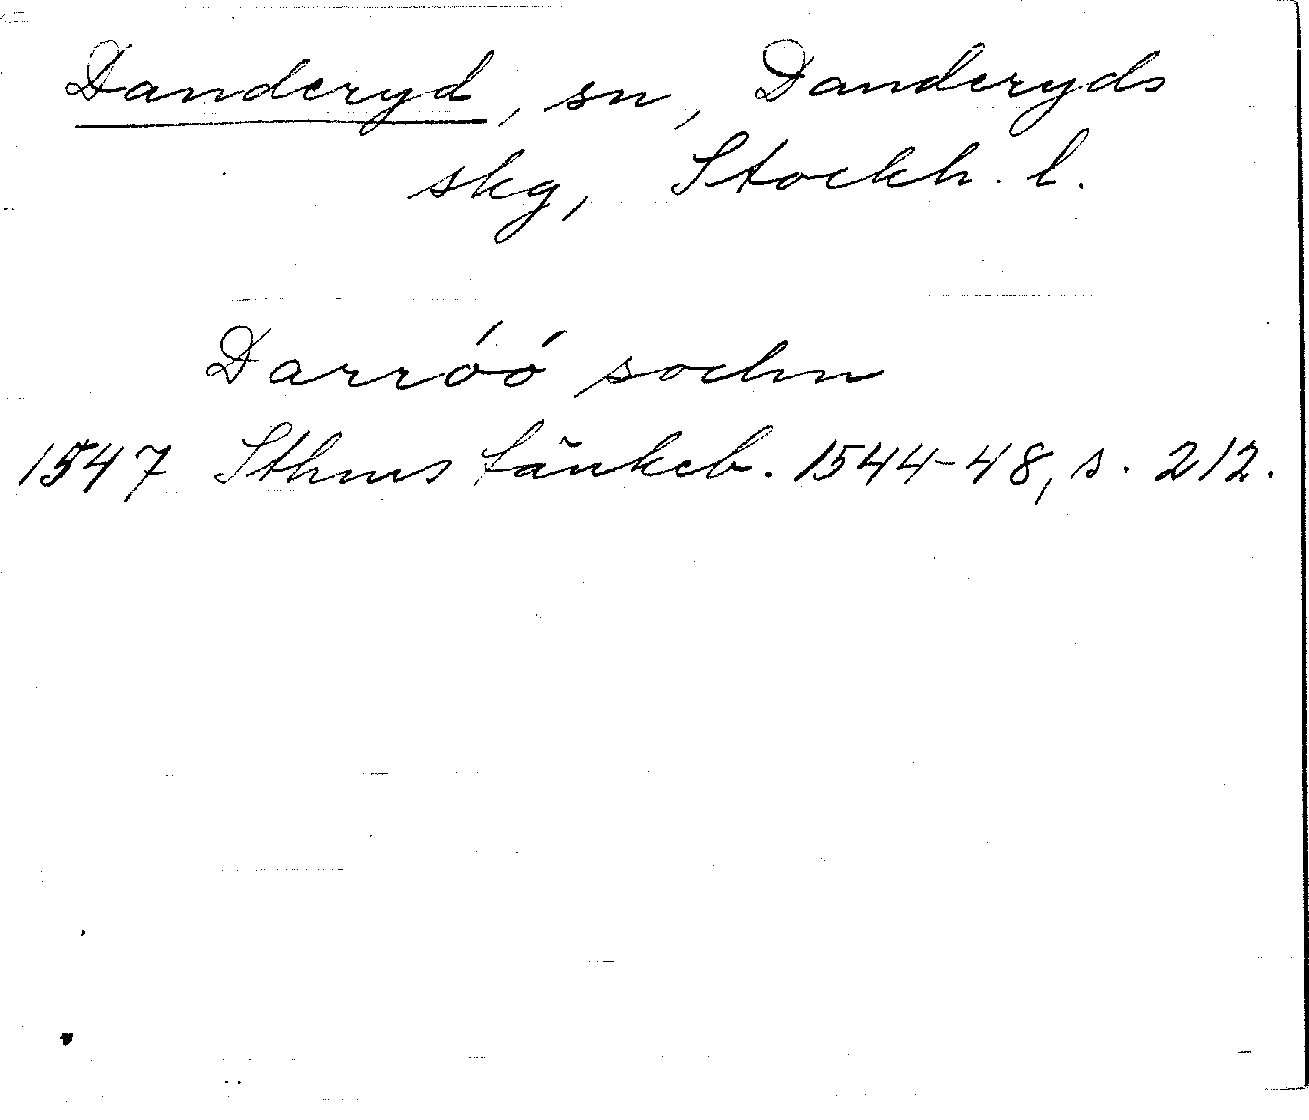 Danderyd, sn, Danderyds
skg, Stockh. l.
Darróó sochn
1547 Sthms tänkeb. 1544-48, s. 212.